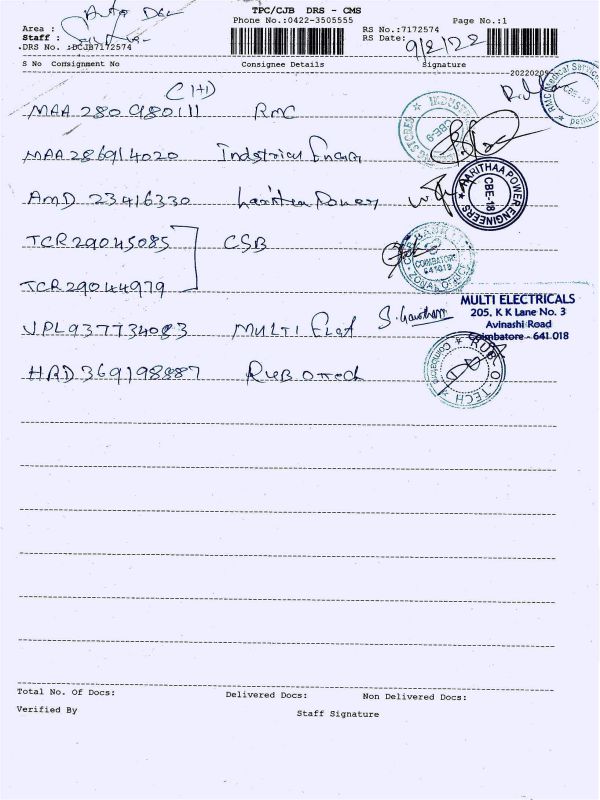 TPC/CJB DRS - CMS
Phone No.:0422-3505555 Page No.:1
Area : Auto
Staff :
RS No.:7172574
DRS No. :DCJB7172574
RS Date: 9/2/22
S No Consignment No Consignee Details Signature
20220209
C (H)
MAA 280980111 RMC
MAA 286914020 Industrial Energy
AMD 23416330 Haritha Power
TCR 29045085 CSB
TCR 29044979
VPL 937734083 MULTI Elect
HRD 369198887 RUB O Tech
RMC Medical Servic
INDUSTR
STORES
CBE-9
AARITHAA POWER ENGINEERS
CBE-18
COIMBATORE
641018
ZONAL OFFICE
S. Gowtham
MULTI ELECTRICALS
205, K K Lane No. 3
Avinashi Road
Coimbatore - 641 018
RUB-O-TECH
Coimbatore
Total No. Of Docs: Delivered Docs: Non Delivered Docs:
Verified By Staff Signature